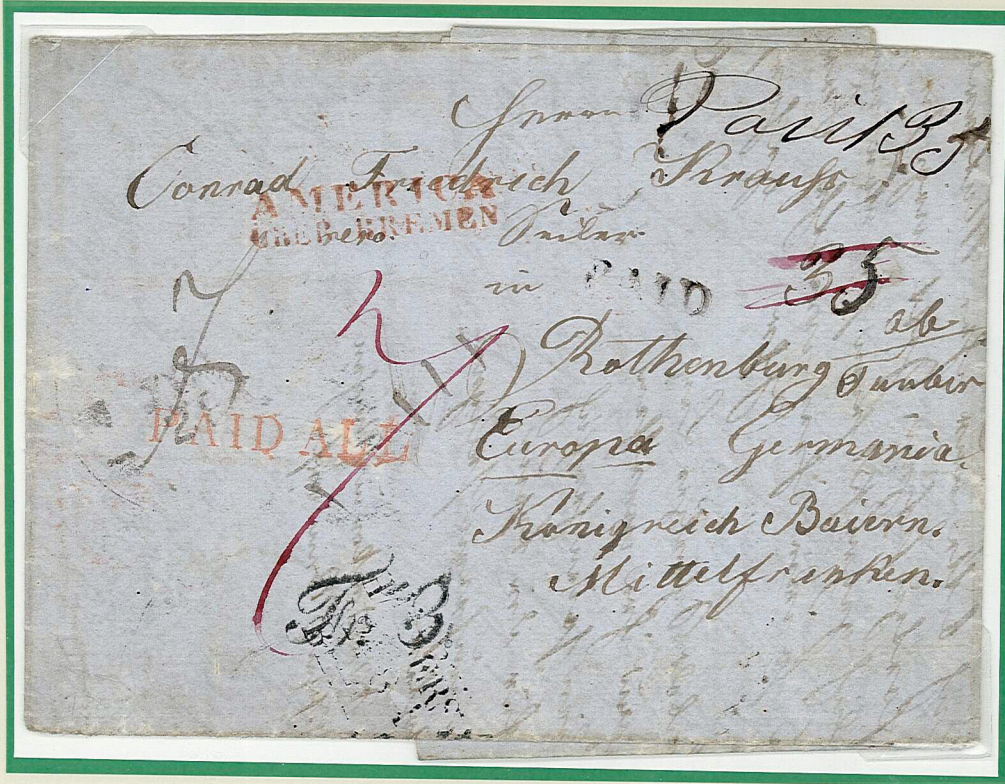 Herrn Paid 35
Conrad Friedrich Krauss
AMERICA
UEBER BREMEN
Seiler
in PAID 35
Rothenburg ab Tauber
PAID ALL
Europa Germania.
Königreich Baiern.
Mittelfrinken.